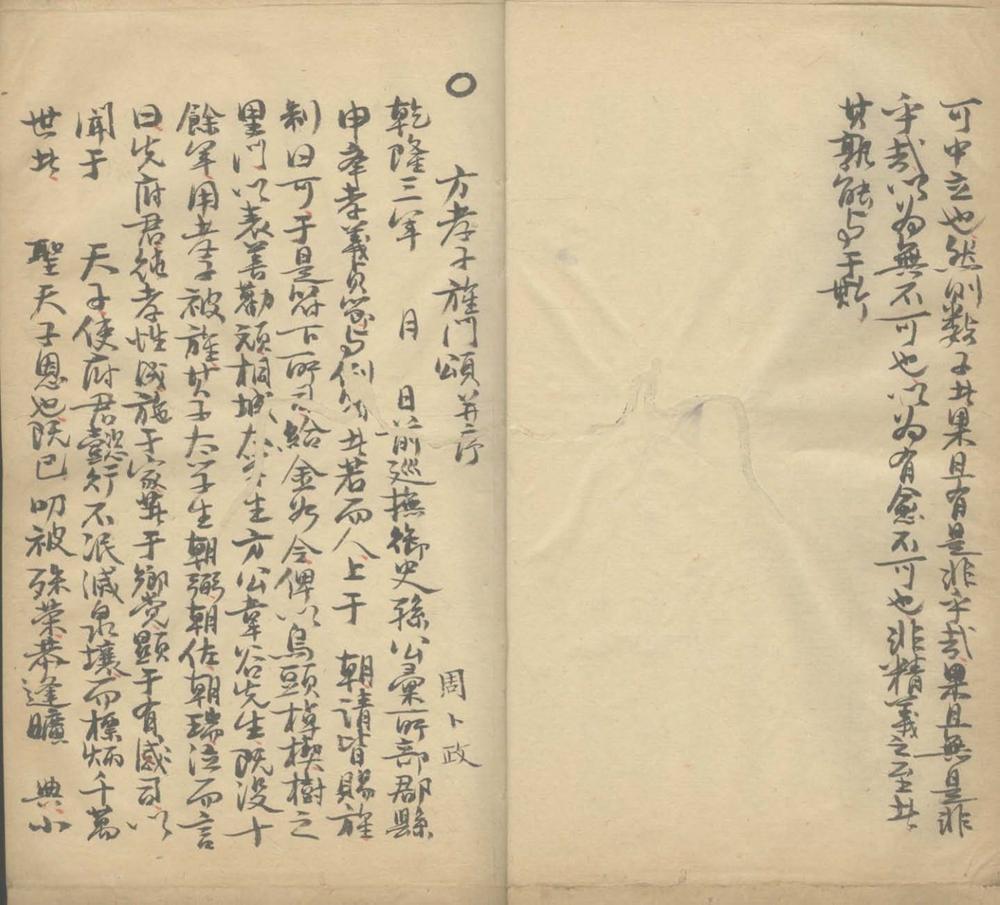 可中立也然則数子者果且有是非乎哉果且無是非
乎哉以為無不可也以為有愈不可也非精義之至者
其孰能与于斯
○
方孝子旌門頌并序
周卜政
乾隆三年 月 日前巡撫御史孫公彙所部郡縣
申奉孝義貞節与例符者若而人上于 朝請皆賜旌
制曰可于是符下所司給金如令俾以烏頭棹楔樹之
里門以表善勸頑桐城太学生方公葦谷先生既没十
餘年用孝子被旌其子太学生朝弼朝佐朝瑞泣而言
曰先府君純孝性成施于家著于鄉党顕于有司以
聞于 天子使府君懿行不泯滅泉壤而標炳千萬
世者 聖天子恩也既已叨被殊荣恭逢曠 典小